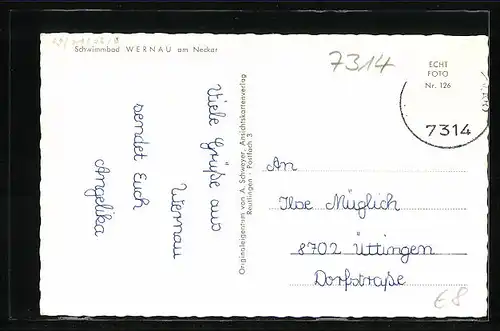 Schwimmbad WERNAU am Neckar
7314
ECHT
FOTO
Nr. 126
7314
Viele Grüße aus
Wernau
sendet Euch
Angelika
Originaleigentum von A. Schweyer, Ansichtskartenverlag
Reutlingen · Postfach 3
An
Ilse Müglich
8702 Üttingen
Dorfstraße
€8